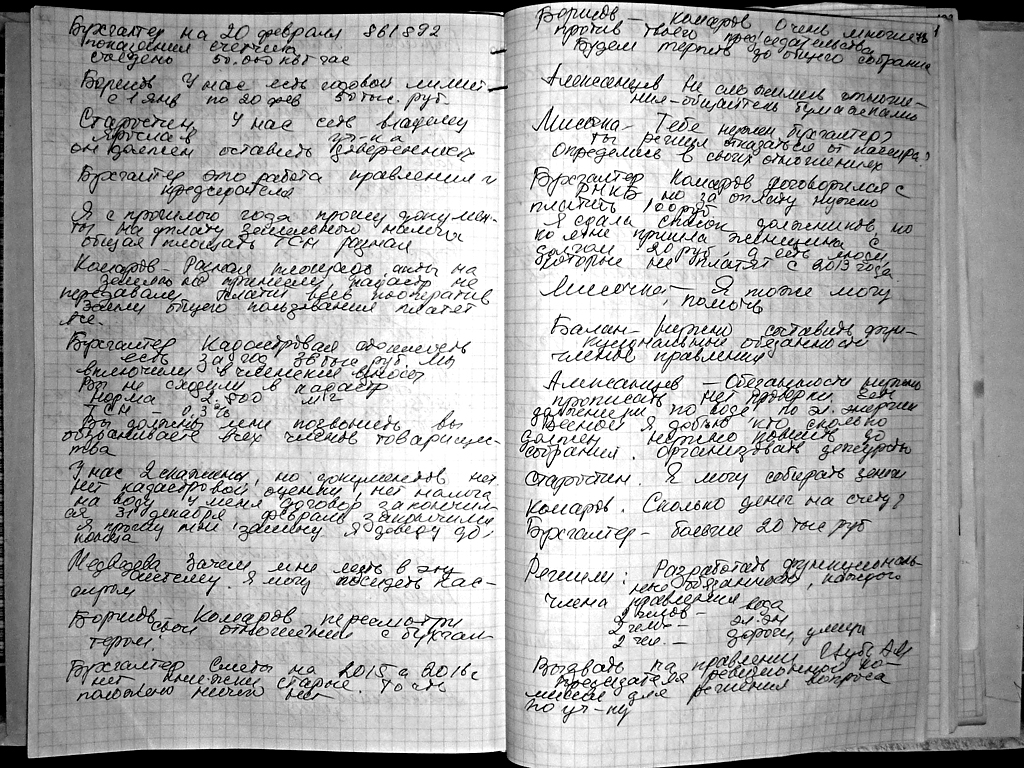 Бухгалтер на 20 февраля 861892
показания счетчика
съедено 50.000 квт час
Борисов У нас есть годовой лимит
с 1 янв по 20 фев 50 тыс. руб.
Старостин У нас есть владелец
уч-ка
он должен оставить доверенность
Бухгалтер это работа правления и
председателя
Я с прошлого года прошу докумен-
ты на оплату земельного налога
общая площадь ТСН разная
Комаров – Разная площадь, акты на
землю не принесли, кадастр не
передавали. Платит весь кооператив
Земли общего пользования платят
все.
Бухгалтер Кадастровая стоимость
есть за год 38 тыс руб. Мы
включили в членские взносы
Вы не сходили в кадастр
Норма 2.800 м2
ТСН – 0,3%
Вы должны мне позвонить вы
обзваниваете всех членов товарищес-
тва
У нас 2 скважины, но документов нет
нет кадастровой оценки, нет налога
на воду. У меня договор закончил-
ся 31 декабря февраль закончился
Я прошу мне замену. Я доведу до
конца
Медведева Зачем мне лезть в эту
систему. Я могу посидеть кас-
сиром
Борисов Комаров пересмотри
свои отношения с бухгал-
тером.
Бухгалтер Сметы на 2015 г а 2016 г
нет старые. То есть
положено ничего нет
Борисов – Комаров Очень многие
против твоего председательства
Будем терпеть до общего собрания
Александров Не сложились отноше-
ния - общайтесь бумагами
Мисочка – Тебе нужен бухгалтер?
Ты решил отказаться от кассира?
Определись в своих отношениях
Бухгалтер Комаров договорился с
РНКБ но за оплату нужно
платить 100 руб
Я сдала список должников но
ко мне пришла женщина с
долгом 20 руб, а есть люди,
которые не платят с 2013 года
Мисочка – Я тоже могу
помочь
Балан – Нужно составить фун-
кциональные обязанности
членов правления
Александров – Обязанности нужно
прописать нет проверки
должники по воде, по эл. энергии
Весной я добью кто сколько
должен. Нужно до
собрания. Организовать дежурство
Старостин. Я могу собирать деньги
Комаров. Сколько денег на счету?
Бухгалтер – больше 20 тыс руб
Решили: Разработать функциональ-
ные обязанности каждого
члена правления
2 члена – вода
2 чел. – эл. эн
2 чел. – дороги, улицы
Вызвать на правление
председателя ревизионной ко-
миссии для решения вопроса
по уч-ку